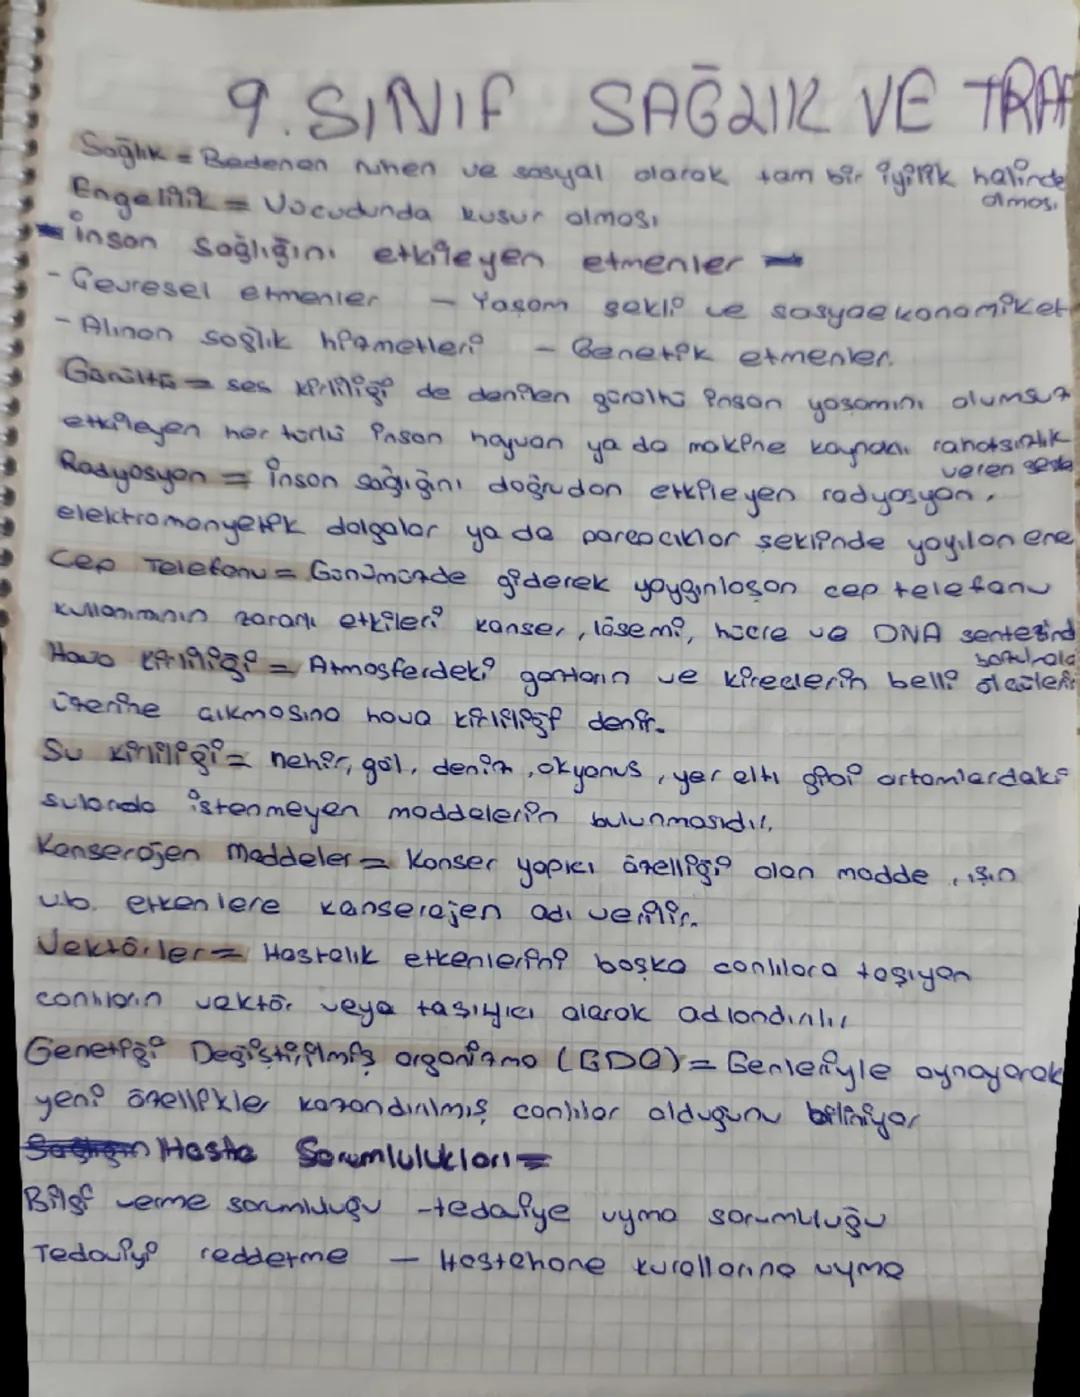 9. SINIF SAĞLIK VE TRAF
Sağlık = Bedenen ruhen ve sosyal olarak tam bir iyilik halinde
olması
Engelilik = Vücudunda kusur olması
insan sağlığını etkileyen etmenler
- Çevresel etmenler - Yaşam şekli ve sosyaekonomiket
- Alınan sağlık hizmetleri - Genetik etmenler.
Gürültü = ses kirliliği de denilen gürültü insan yaşamını olumsuz
etkileyen her türlü insan hayvan ya da makine kaynaklı rahatsızlık
veren
Radyasyon = insan sağlığını doğrudan etkileyen radyasyon,
elektromanyetik dalgalar ya da parçacıklar şeklinde yayılan ene
Cep Telefonu = Günümüzde giderek yaygınlaşan cep telefonu
kullanımanın zararlı etkileri kanser, lösemi, hücre ve DNA sentezind
Hava kirliliği = Atmosferdeki gazların ve kireçlerin belli ölçüleri
üzerine çıkmasına hava kirliliği denir.
Su kirliliği = nehir, göl, deniz, okyanus, yer altı gibi ortamlardaki
sularda istenmeyen maddelerin bulunmasıdır.
Kanserojen Maddeler = Kanser yapıcı özelliği olan madde, ışın
v.b. etkenlere kanserojen adı verilir.
Vektörler = Hastalık etkenlerini başka canlılara taşıyan
canlıların vektör veya taşıyıcı olarak adlandırılır
Genetiği Değiştirilmiş organizma (GDO) = Genleriyle oynayarak
yeni özellikler kazandırılmış canlılar olduğunu biliniyor
Hasta Sorumlulukları =
Bilgi verme sorumluluğu - tedaviye uyma sorumluluğu
Tedaviyi reddetme - Hastehane kurallarına uyma